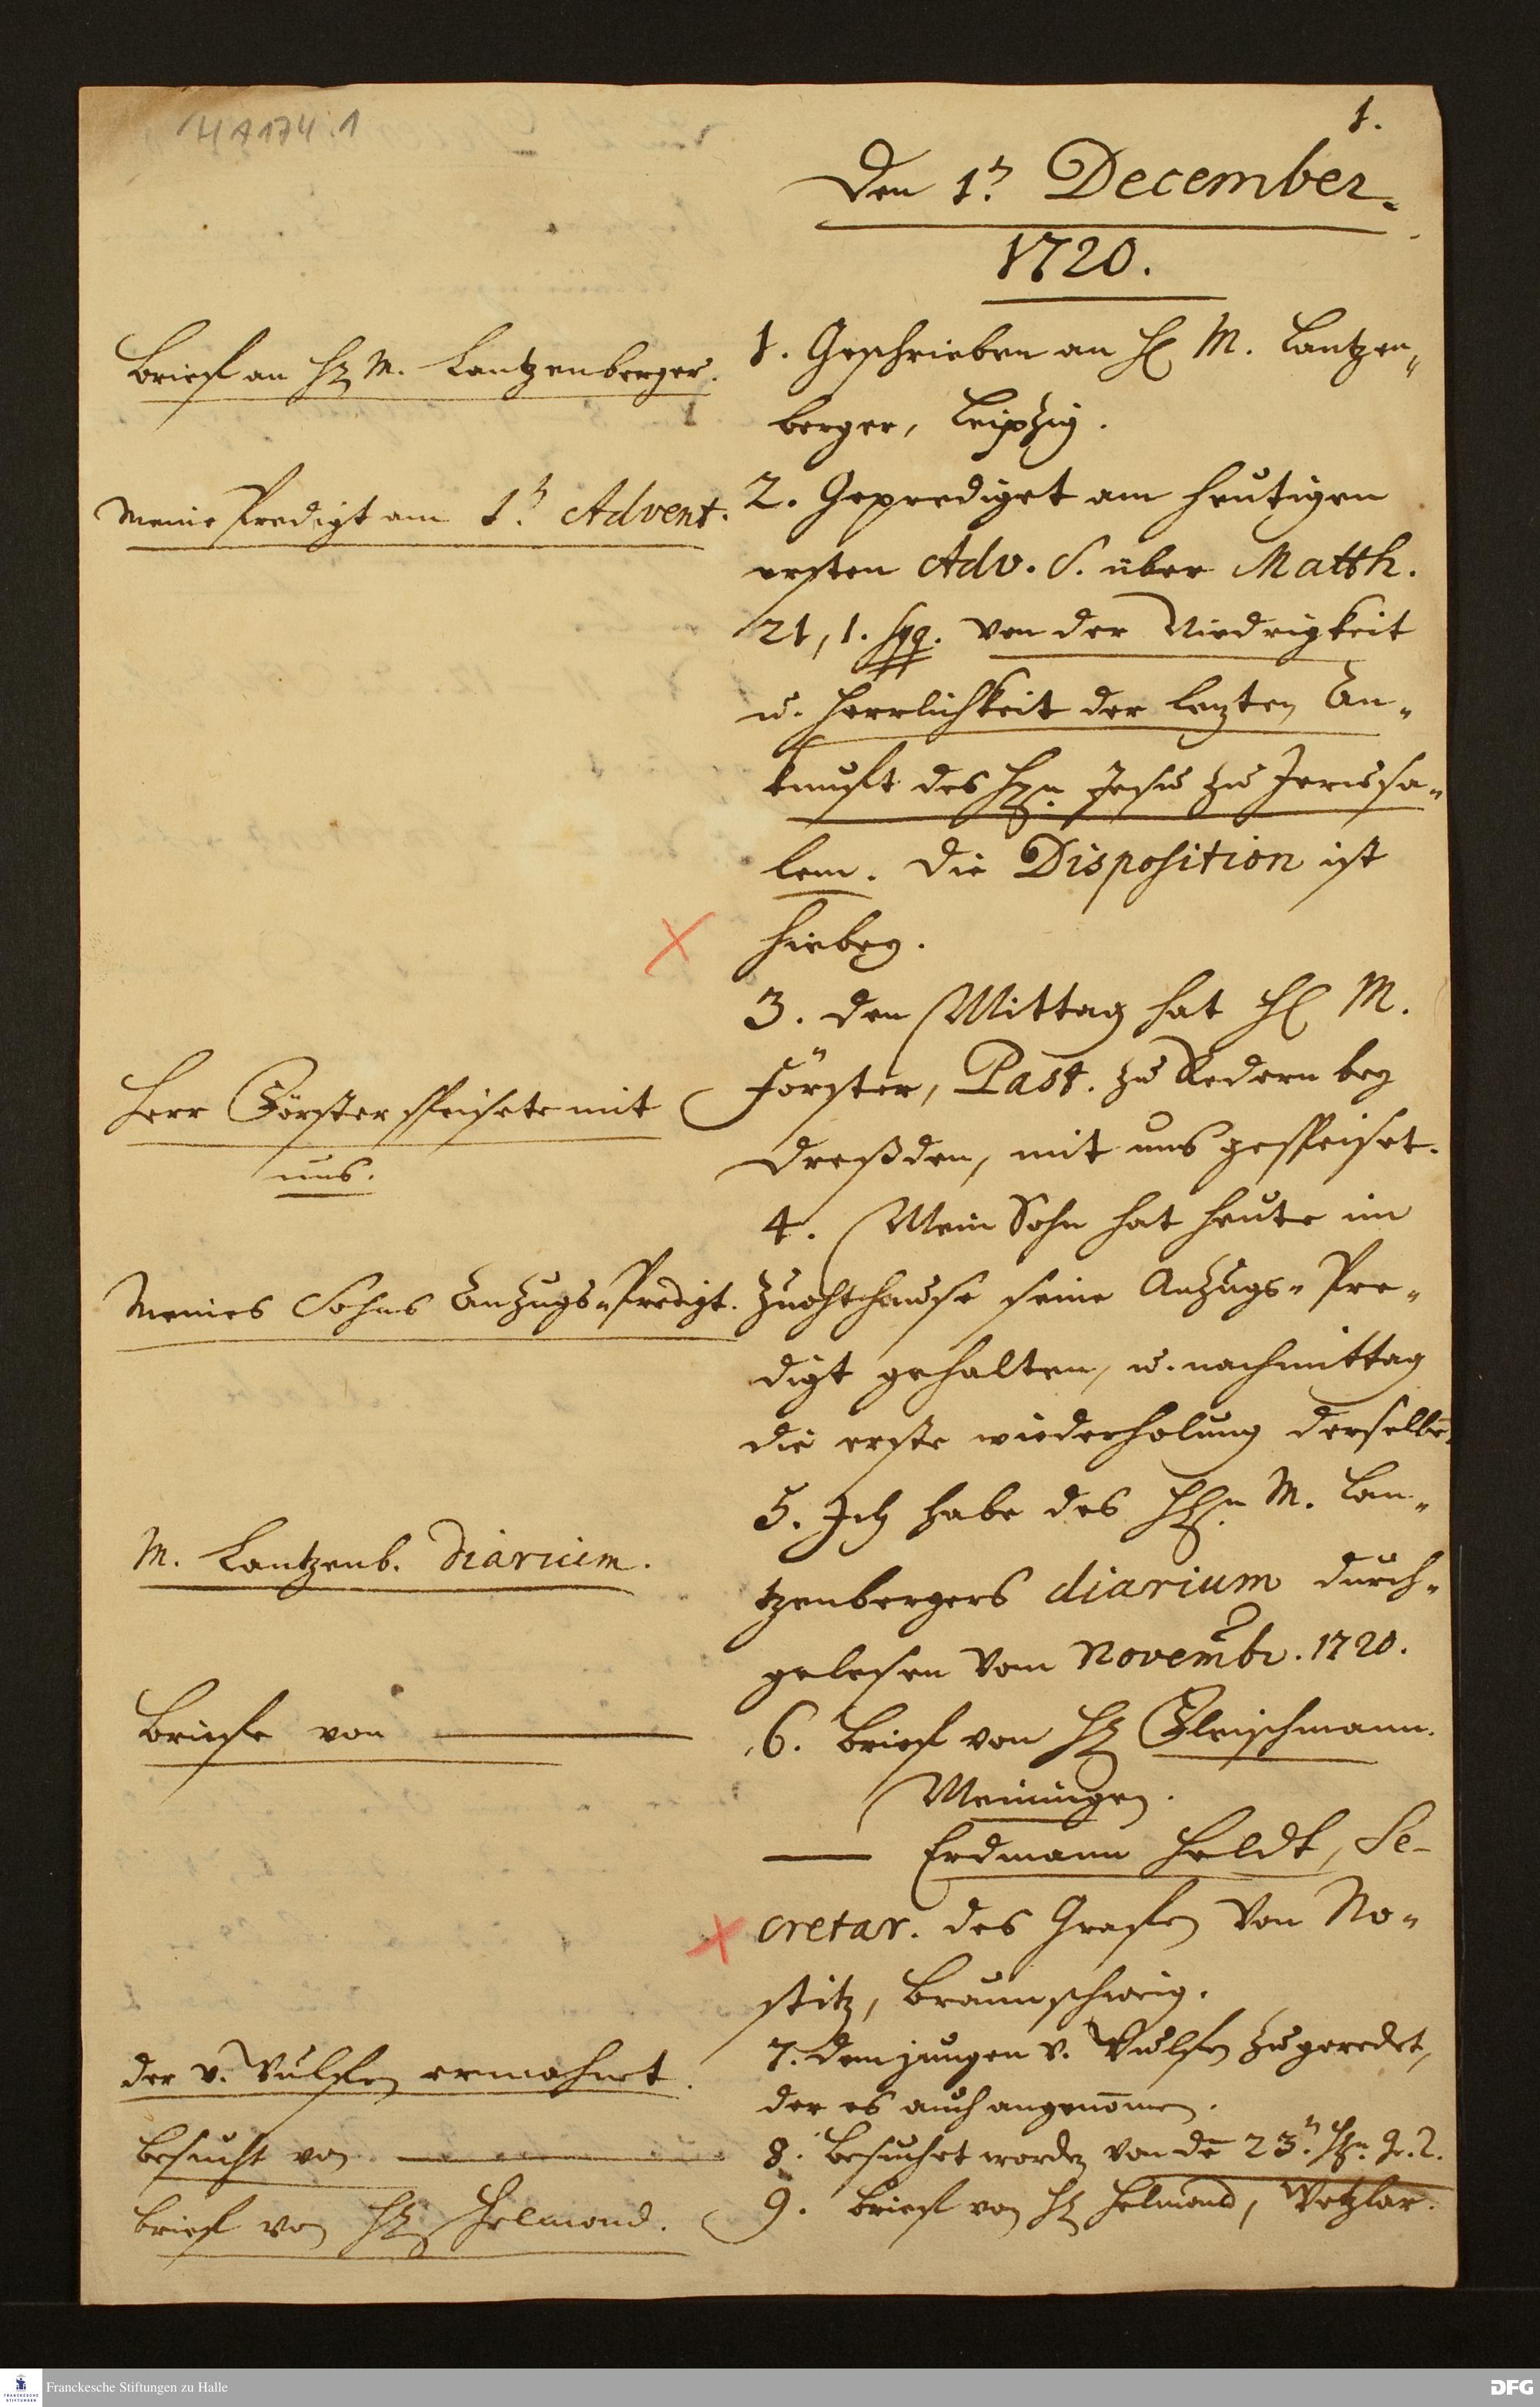 HA 174:1
1.
Den 1.n December.
1720.
Brief an H. M. Lantzenberger.
1. Geschrieben an H. M. Lantzen-
berger, Leipzig.
Meine Predigt am 1.n Advent.
2. Geprediget am heutigen
ersten Adv. S. über Matth.
21, 1. sqq. von der Niedrigkeit
u. Herrlichkeit der letzten An-
kunfft des Hrn. Jesu zu Jerusa-
lem. Die Disposition ist
hiebey.
Herr Förster speisete mit
uns.
3. Den Mittag hat H. M.
Förster, Past. zu Redern bey
Dreßden, mit uns gespeiset.
Meines Sohns Anzugs-Predigt.
4. Mein Sohn hat heute im
Zuchthause seine Anzugs-Pre-
digt gehalten, u. nachmittag
die erste wiederholung derselben.
M. Lantzenb. Diarium.
5. Ich habe des Hn. M. Lan-
tzenbergers diarium durch-
gelesen vom Novembr. 1720.
Briefe von
6. Brief von H. Fleischmann.
Meiningen.
Erdmann Heldt, Se-
cretar. des Grafen von No-
stitz, Braunschweig.
der v. Wulffen ermahnet.
7. dem jungen v. Wulffen zugeredet,
der es auch angenomen.
Besucht von
8. Besuchet worden von dē 23.n Hn. Gr. R.
Brief von H. Helmond.
9. Brief von H. Helmond, Wetzlar.
Franckesche Stiftungen zu Halle
DFG